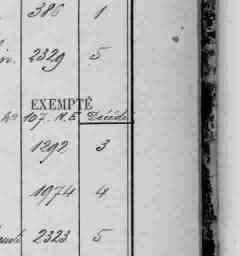 386 1
in. 2329 5
EXEMPTÉ
No 107. N.E Décédé
1292 3
1974 4
2323 5